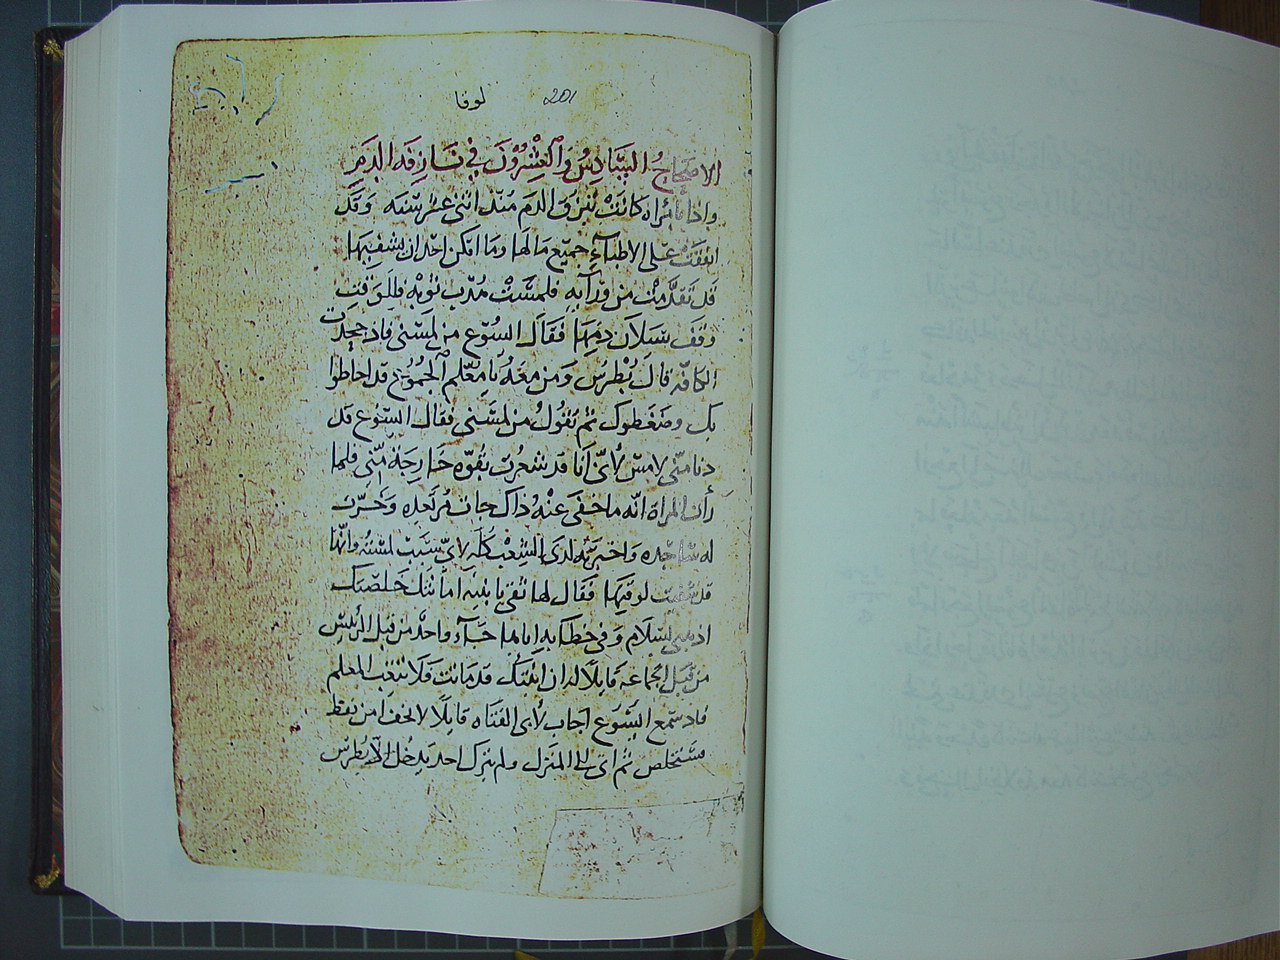 لوقا 201
الاصحاح السادس والعشرون في نازفه الدم
واذا بامراه كانت تنزف الدم منذ اثنتي عشر سنه وقد
انفقت على الاطباء جميع مالها وما امكن احد ان يشفيها
قد تقدمت من ورآيه فلمست هدب ثوبه فللوقت
وقف سيلان دمها فقال اليسوع من لمسني فاذ جحدت
الكافه قال بطرس ومن معه يا معلم الجموع قد احاطوا
بك وضغطوك ثم تقول من لمسني فقال اليسوع قد
دنا مني لامس لأني انا قد شعرت بقوه خارجة مني فلما
رأت المراة انه ما خفى عنه ذاك جات مرتعده وخرت
له ساجده واخبرته لدى الشعب كله لاي سبب لمسته وانها
قد شفيت لوقتها فقال لها ثقي يا ابنه امانتك خلصتك
اذهبي بسلام وفي خطابه اياها جآء واحد من قبل الرئيس
من قبل الجماعه قايلا له ان ابنتك قد ماتت فلا تتعب المعلم
فاذ سمع اليسوع اجاب لأبي الفتاه قايلا لا تخف امن فقط
فستخلص ثم اتى الى المنزل ولم يترك احد يدخل الا بطرس